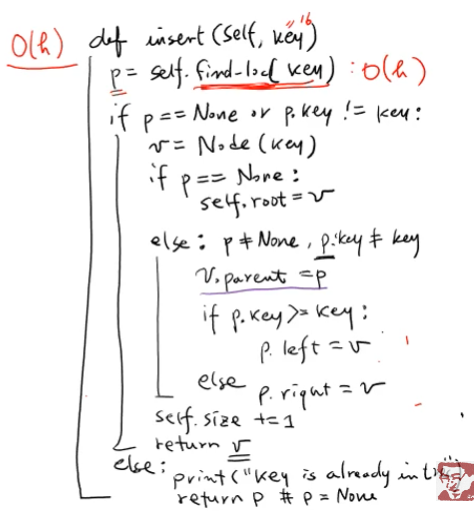 O(h) def insert(self, key) "16"
p = self.find-loc(key) : O(h)
if p == None or p.key != key:
v = Node(key)
if p == None:
self.root = v
else: p ≠ None, p.key ≠ key
v.parent = p
if p.key >= key:
p.left = v
else p.right = v
self.size += 1
return v
else:
print("key is already in
return p # p = None